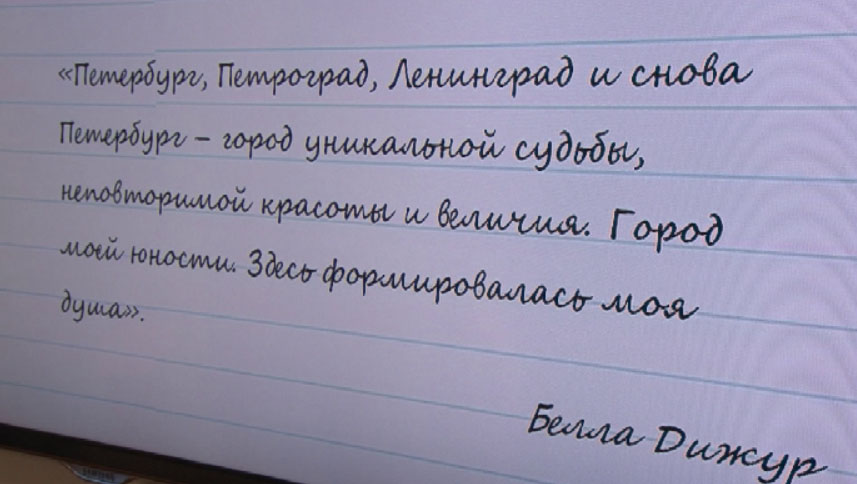 «Петербург, Петроград, Ленинград и снова
Петербург – город уникальной судьбы,
неповторимой красоты и величия. Город
моей юности. Здесь формировалась моя
душа».
Белла Дижур